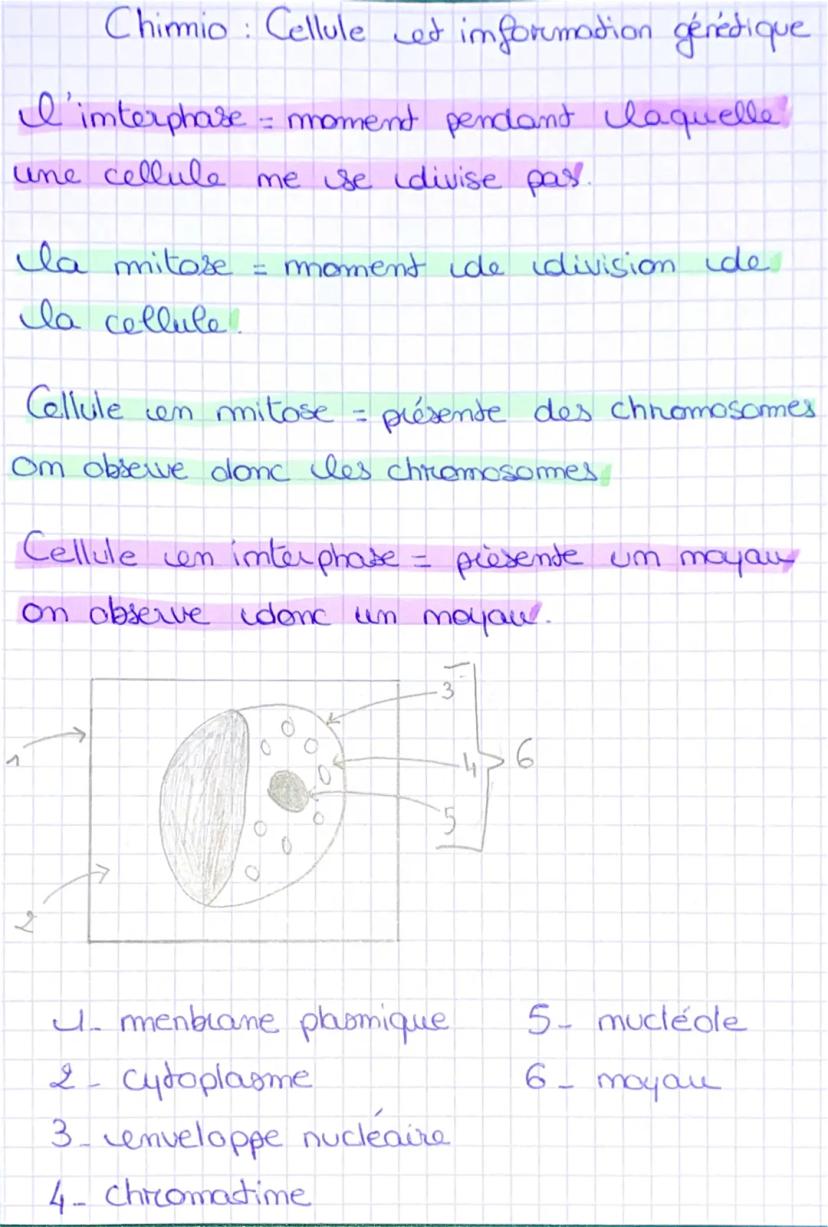 Chimio : Cellule et information génétique
L'interphase = moment pendant laquelle
une cellule ne se divise pas.
la mitose = moment de division de
la cellule.
Cellule en mitose = présente des chromosomes
on observe donc les chromosomes
Cellule en interphase = présente un noyau
on observe donc un noyau.
3
1
4
6
5
2
1- menbrane plasmique
5- nucléole
2- cytoplasme
6- noyau
3- enveloppe nucléaire
4- chromatine